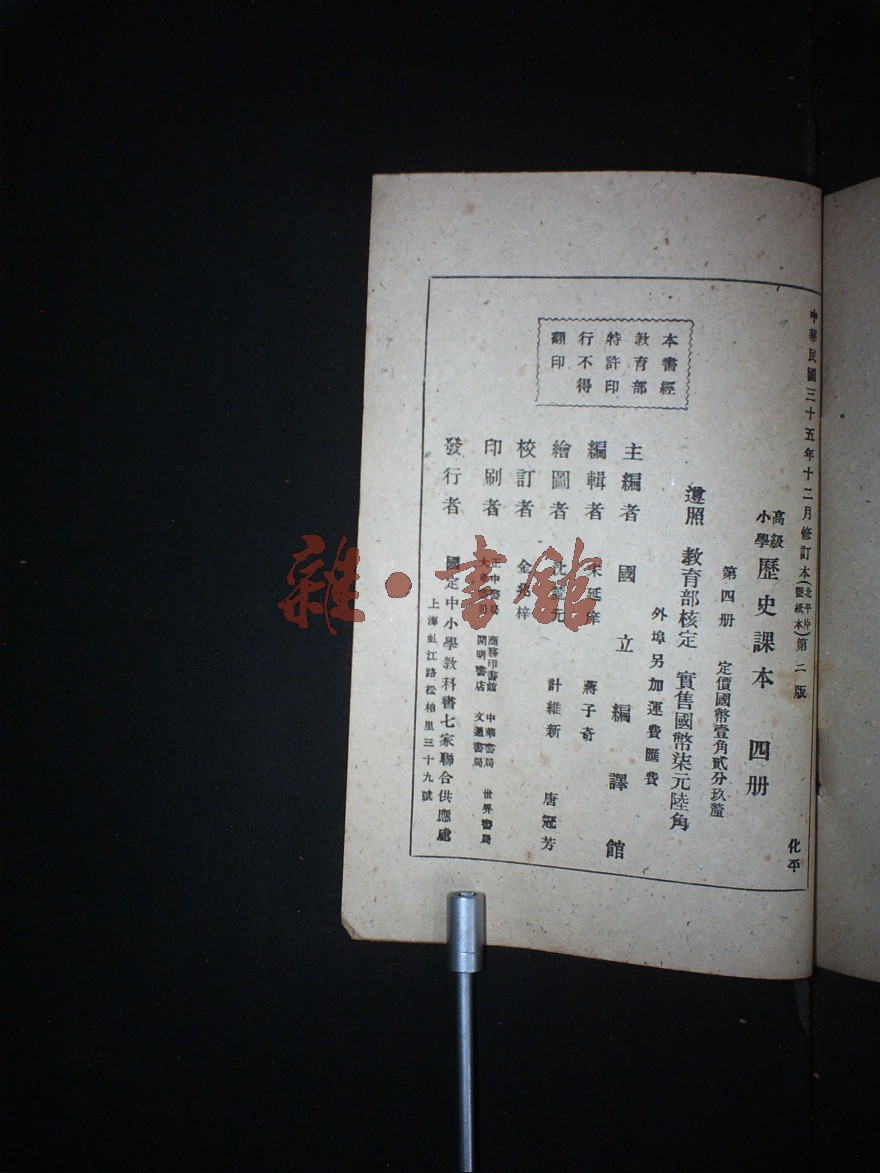 中華民國三十五年十二月修訂本(北平片豐紙本)第二版
高級小學 歷史課本 四册
第四册 定價國幣壹角貳分玖釐
遵照 教育部核定 實售國幣柒元陸角
外埠另加運費匯費
本書經
教育部
特許印
行不得
翻印
主編者 國立編譯館
編輯者 延 蔣子奇
繪圖者 元 計維新 唐冠芳
校訂者 金兆梓
印刷者 正中書局 商務印書館 中華書局 世界書局
大東書局 開明書店 文通書局
發行者 國定中小學教科書七家聯合供應處
上海虹江路松柏里三十九號
化平
雜·書館